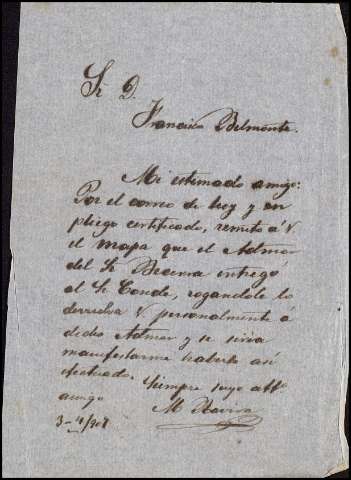 Sr D.
Francisco Belmonte.
Mi estimado amigo:
Por el correo de hoy y en
pliego certificado, remito á V
el mapa que el Admor
del Sr Becerra entregó
al Sr Conde, rogandole lo
devuelva V personalmente á
dicho Admor y se sirva
manifestarme haberlo asi
efectuado. Siempre suyo affo
amigo
M
3-4/907